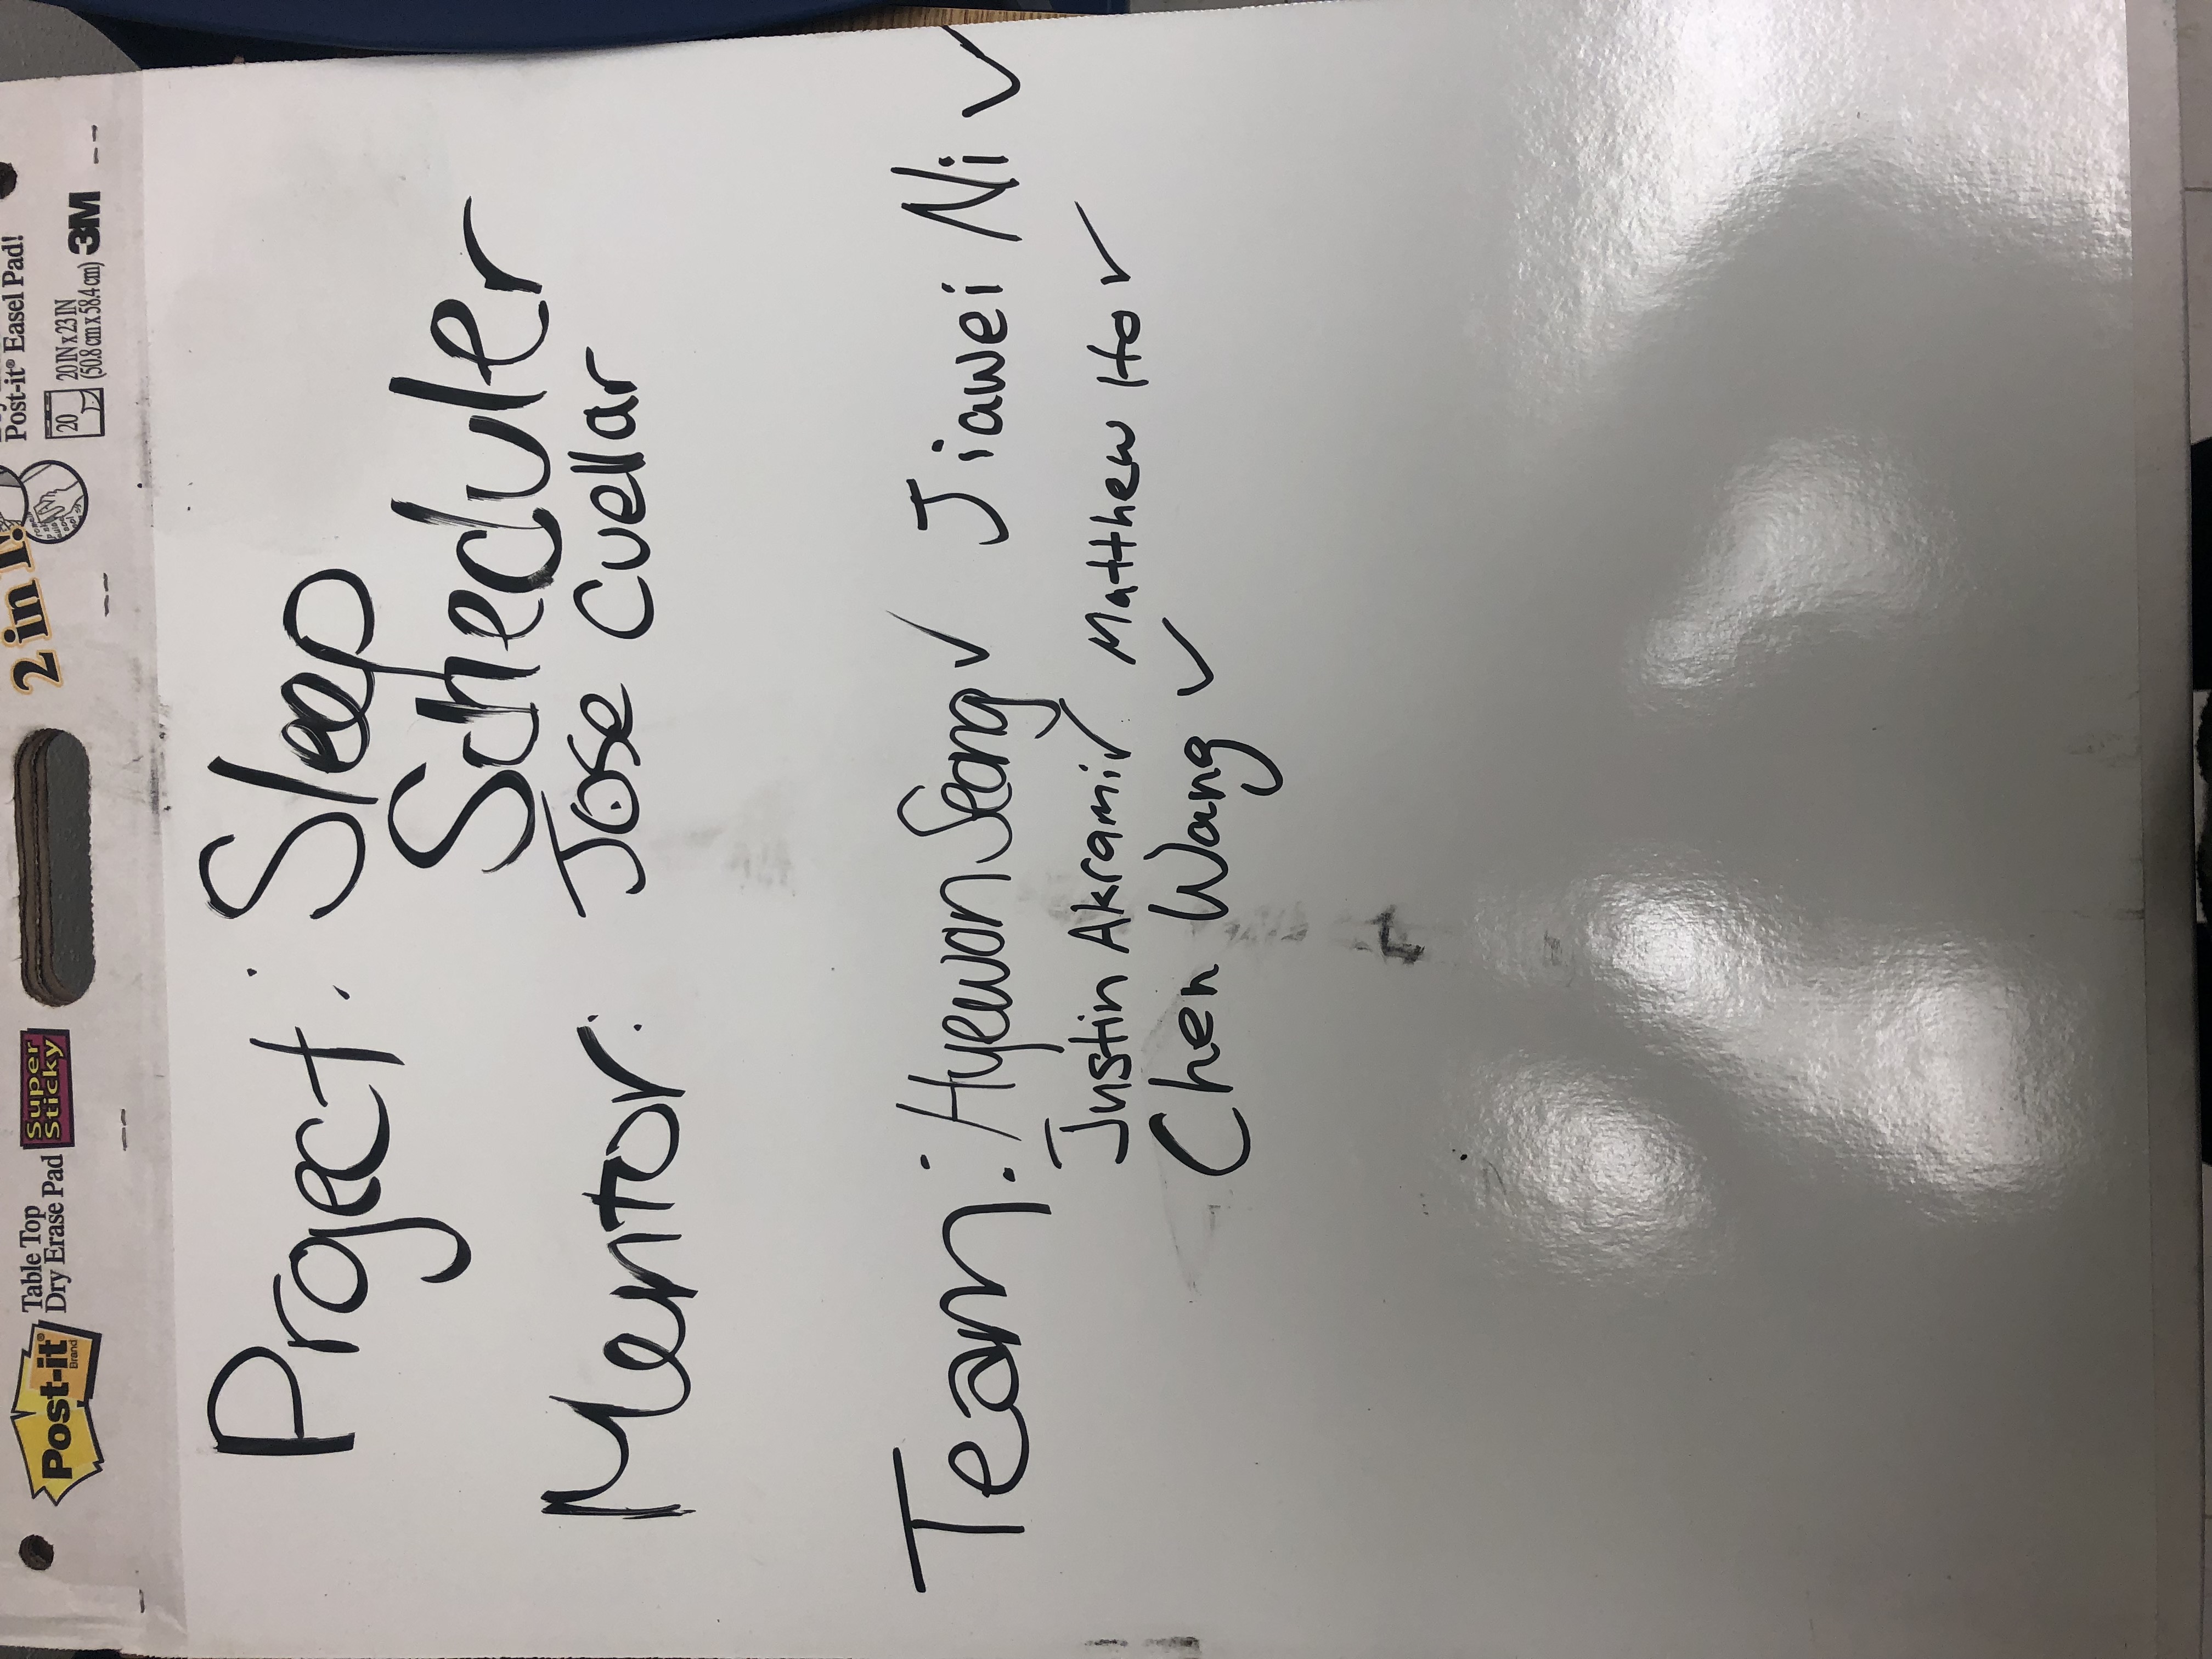 Post-it Brand
Table Top
Dry Erase Pad
Super
Sticky
2 in 1!
Post-it® Easel Pad!
20
20 IN x 23 IN
(50.8 cm x 58.4 cm)
3M
Project: Sleep
Scheduler
Mentor: Jose Cuellar
Team: Hyewon Seong ✓ Jiawei Ni ✓
Justin Akrami ✓ Matthew Ho ✓
Chen Wang ✓